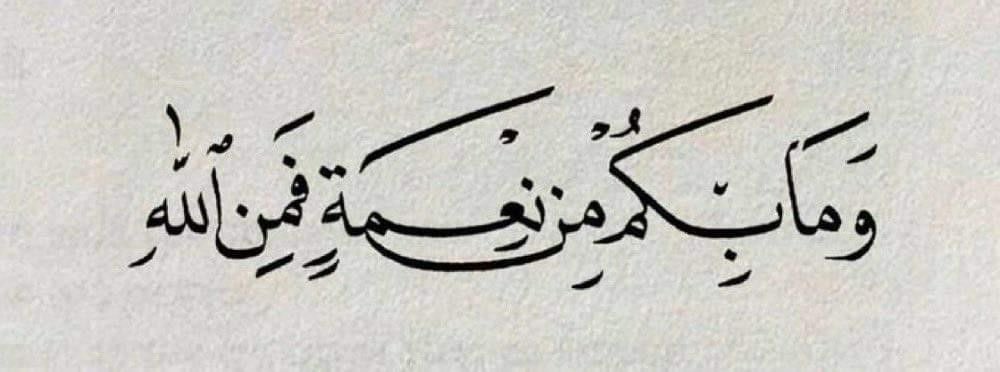 وَمَا بِكُمْ مِنْ نِعْمَةٍ فَمِنَ ٱللَّهِ